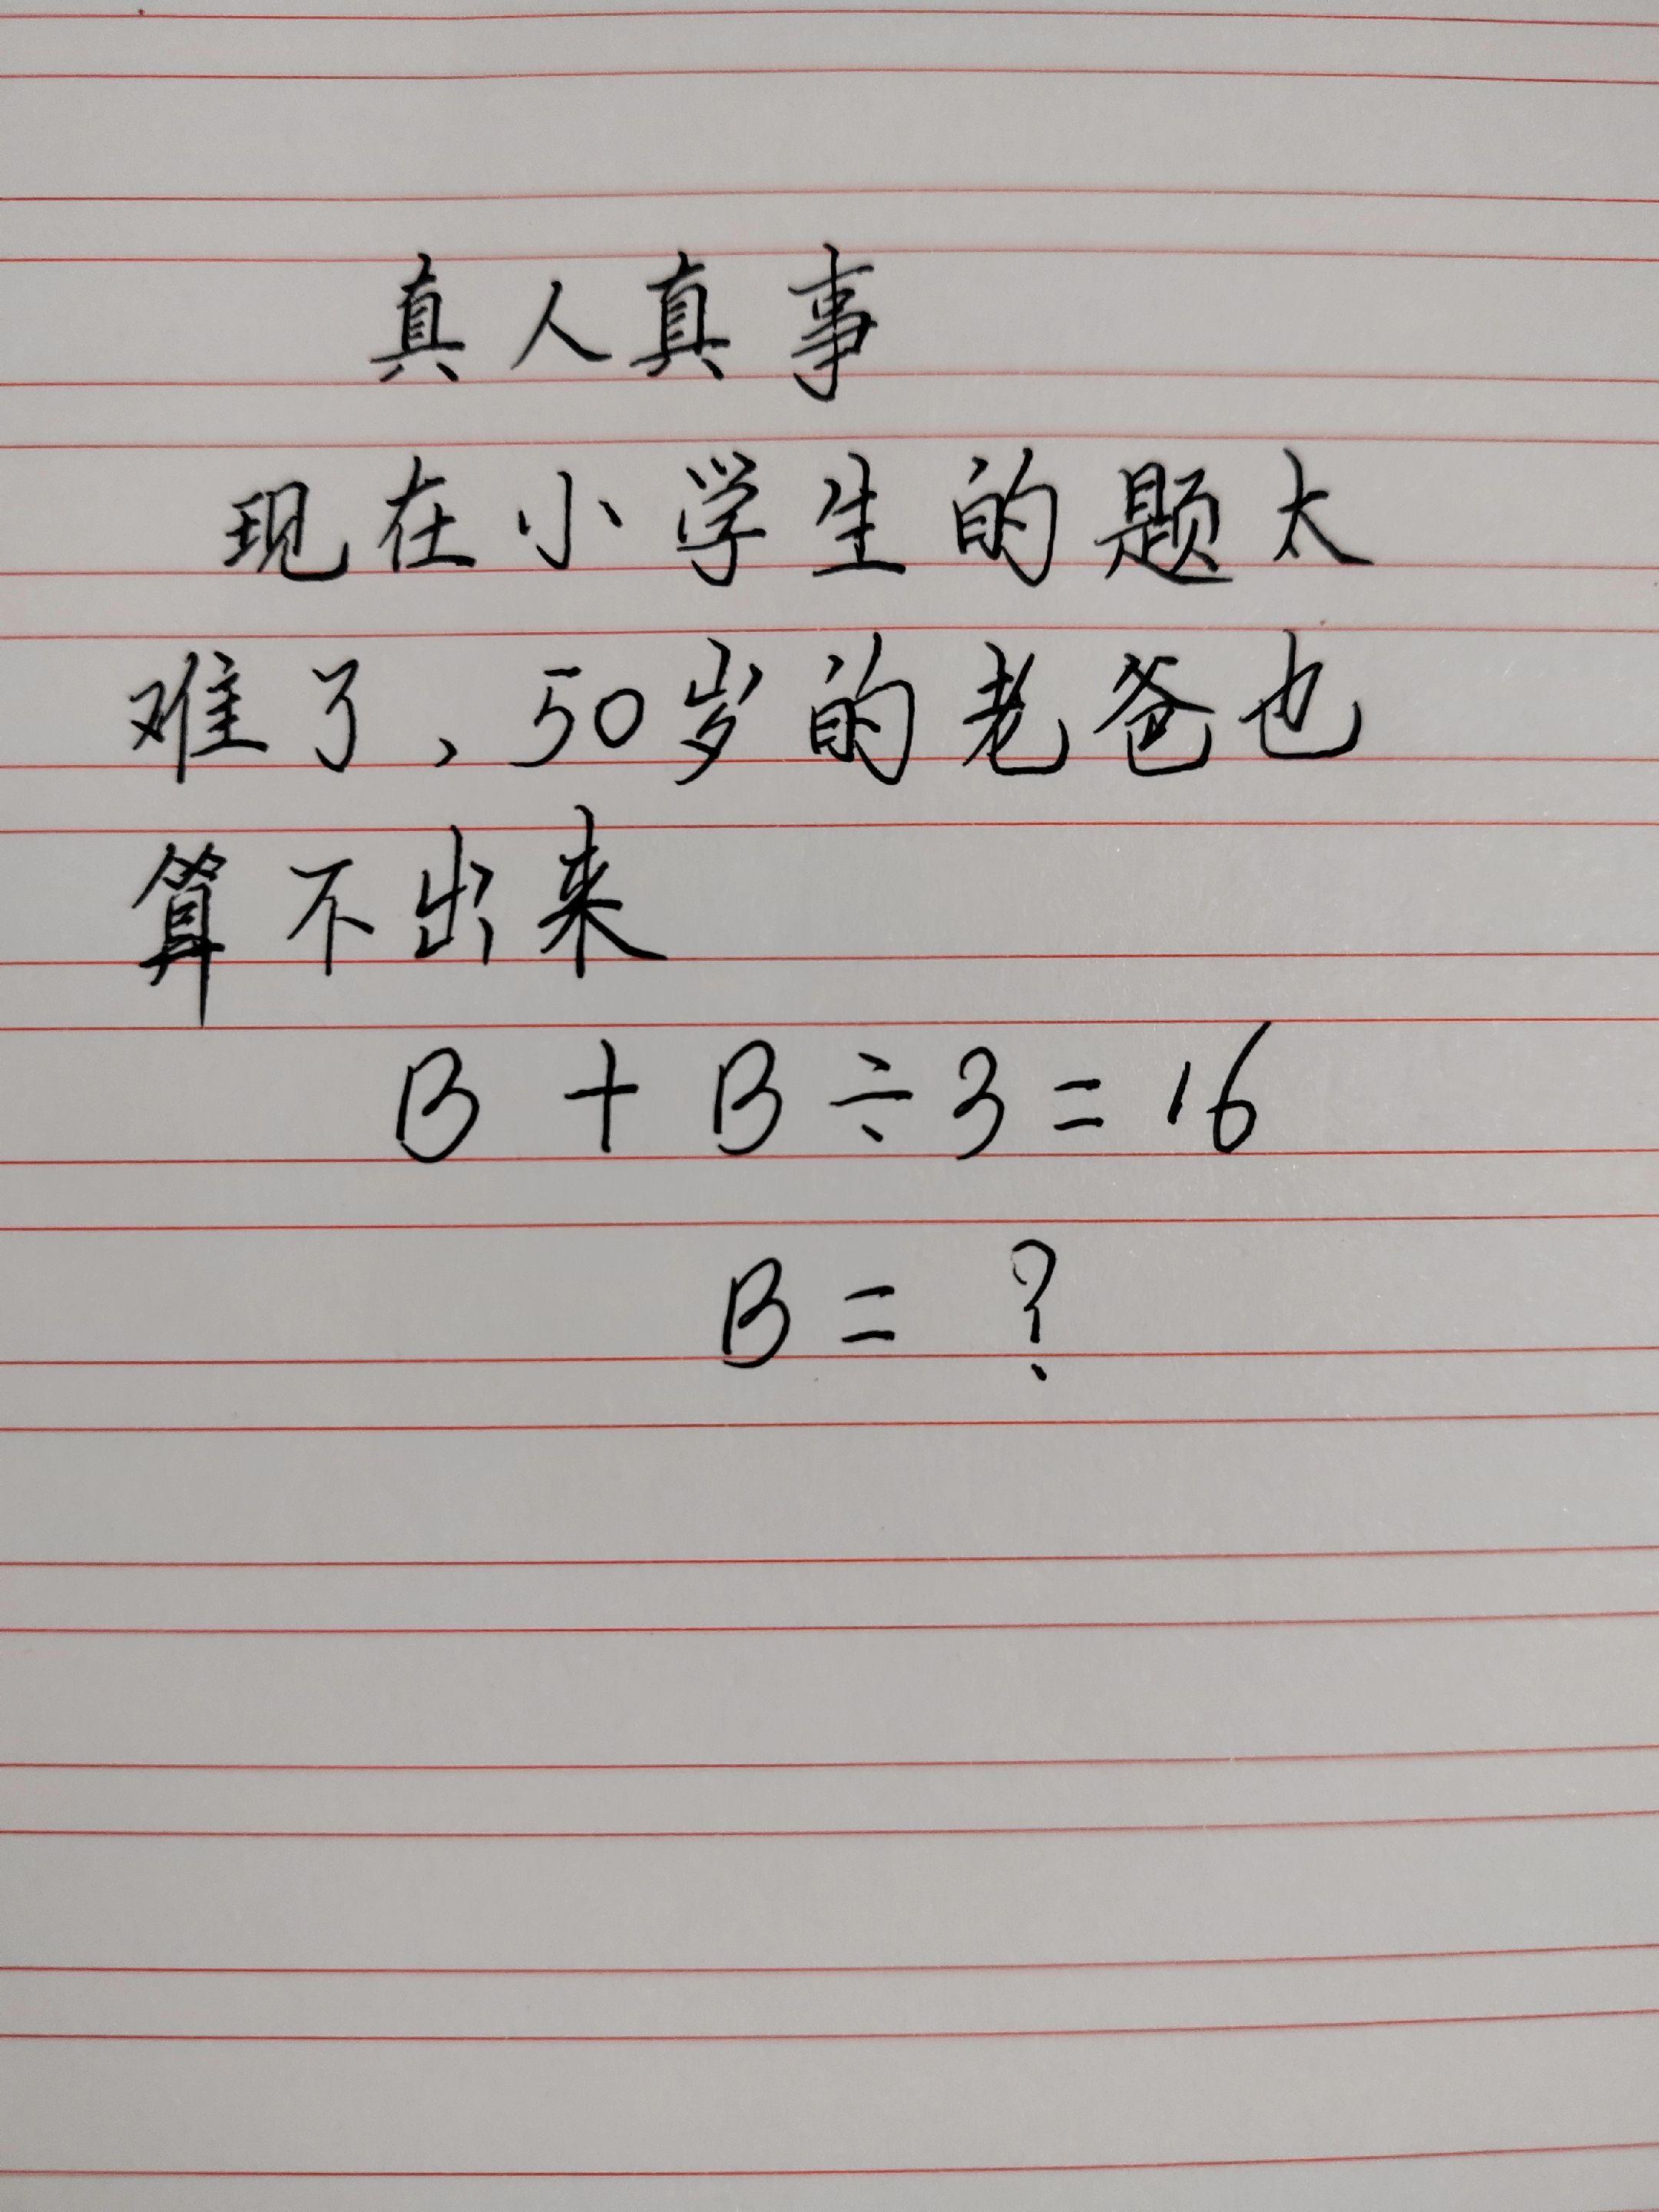 真人真事
现在小学生的题太
难了,50岁的老爸也
算不出来
B + B ÷ 3 = 16
B = ?